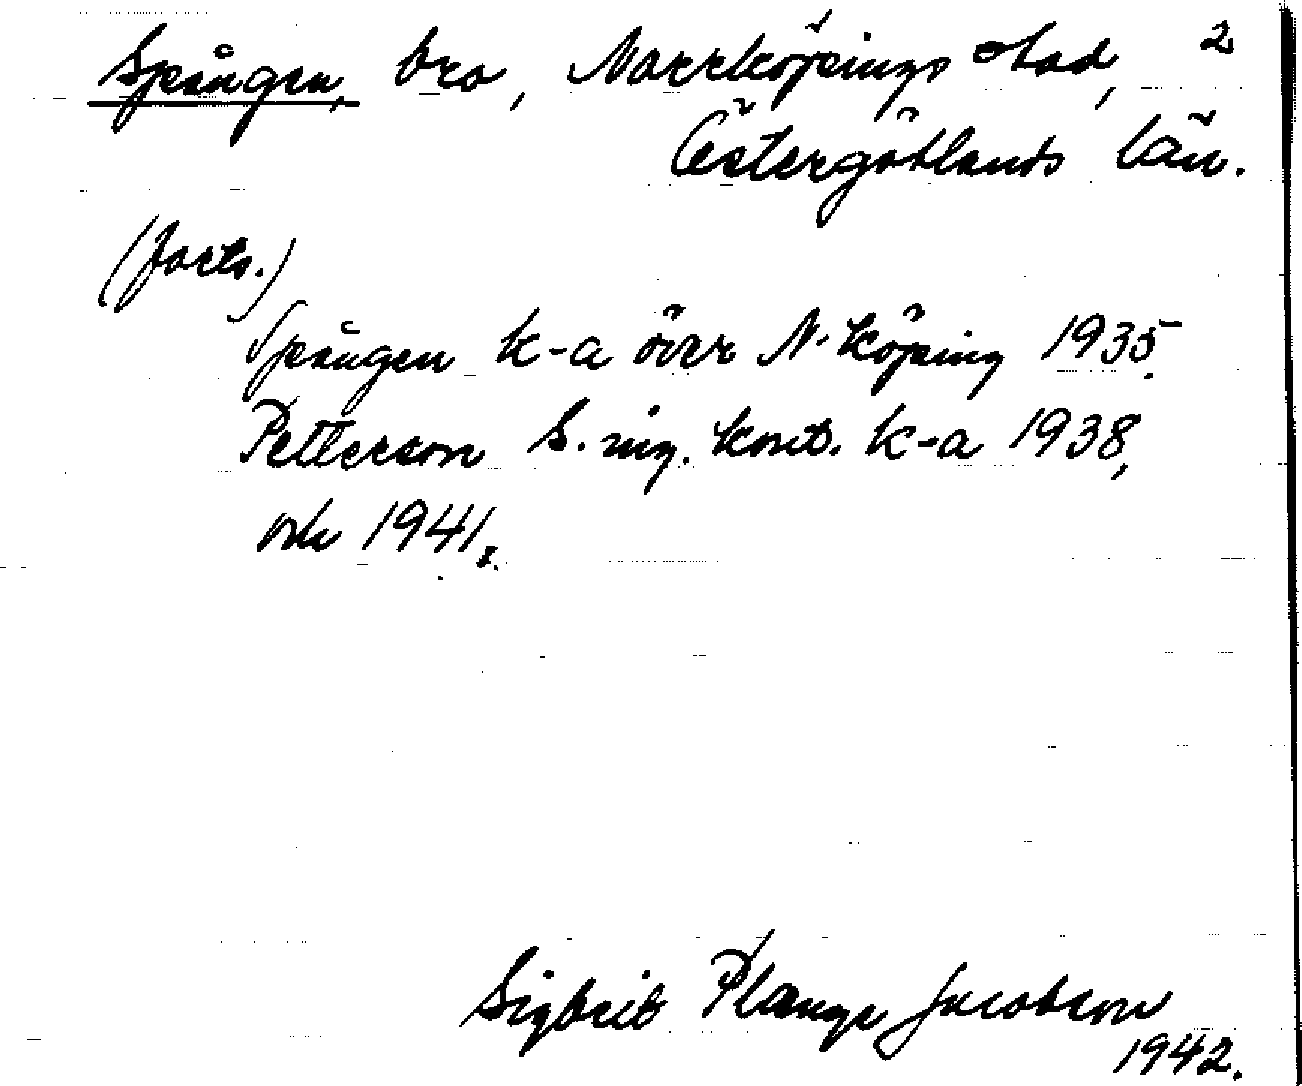 Spången, bro, Norrköpings stad, 2
Östergötlands län.
(forts.)
Spången k-a över N-köping 1935.
Petterson S. ing. kont. k-a 1938,
och 1941.
Sigbrit Plænge Jacobson
1942.